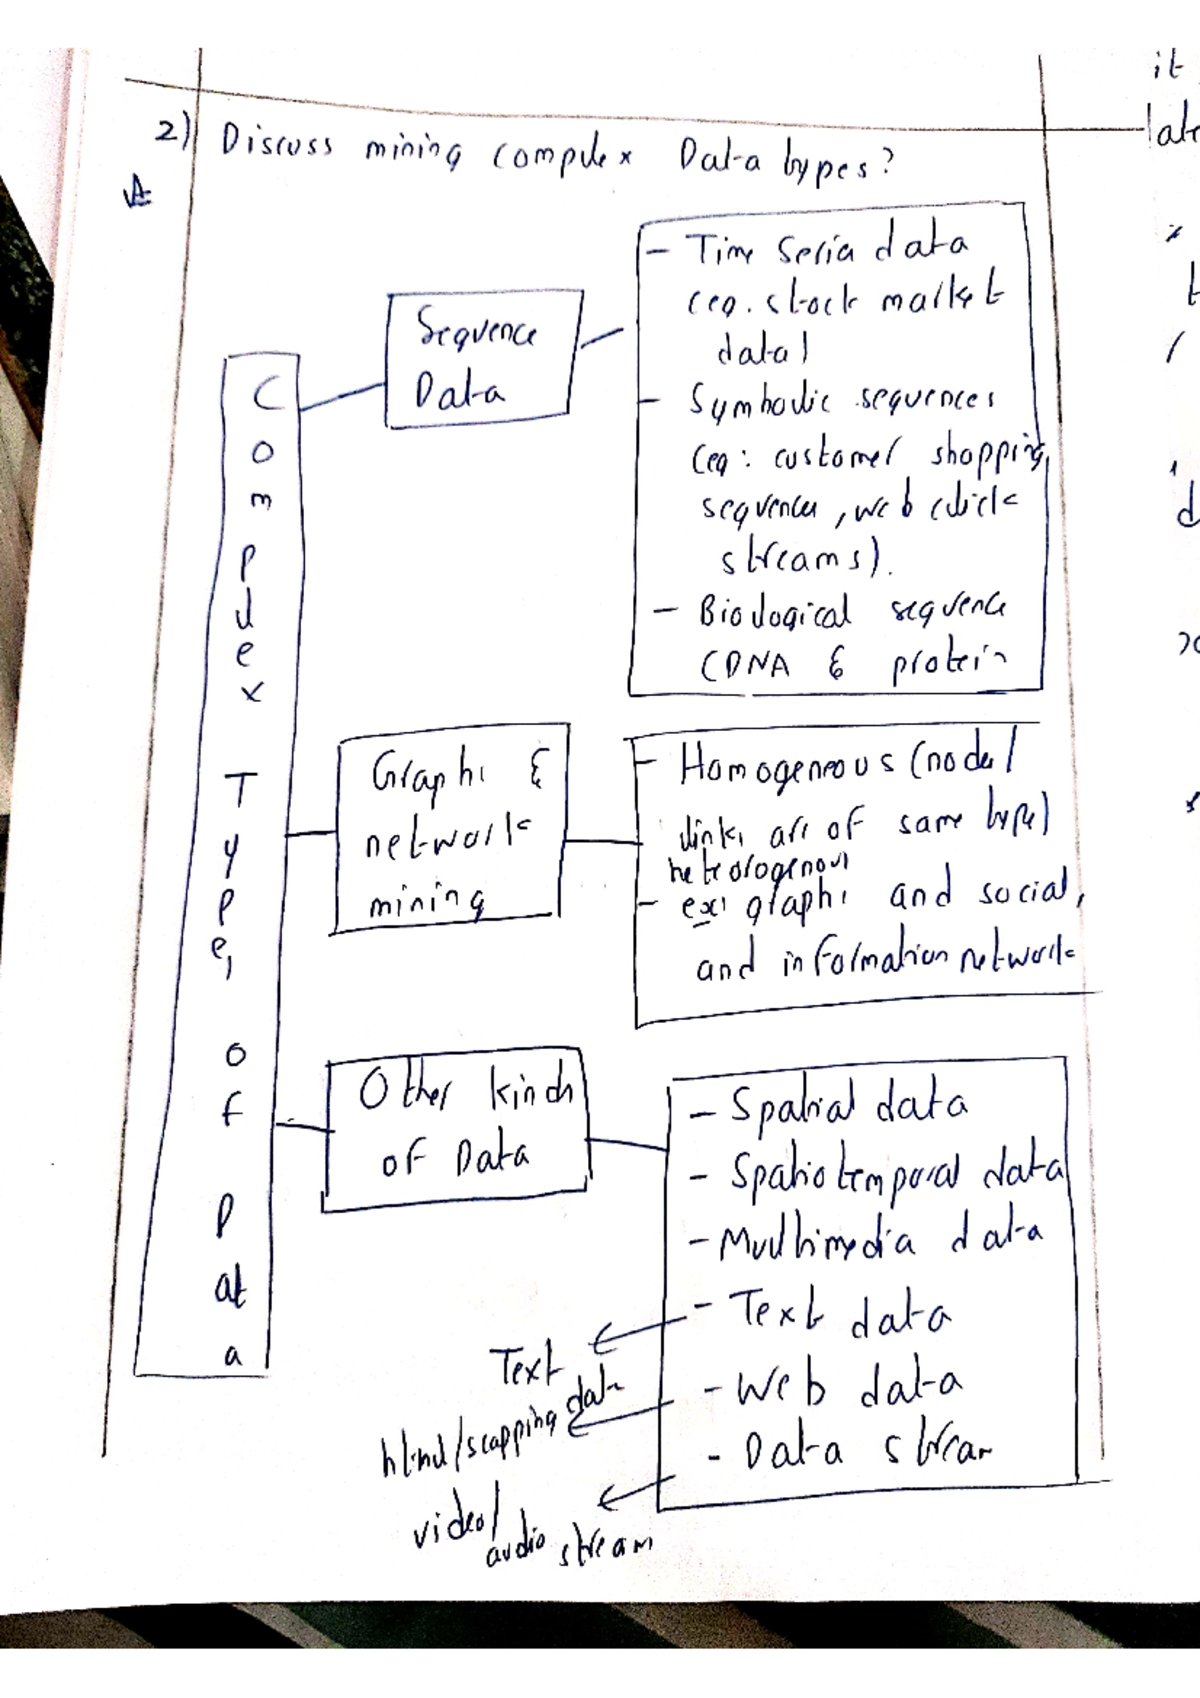 2) Discuss mining complex Data types?
A
Complex Types of Data
Sequence
Data
- Time Series data
(eg. stock market
data)
- Symbolic sequences
(eg: customer shopping
sequences, web click
streams).
- Biological sequence
(DNA & protein
Graphs &
network
mining
- Homogeneous (nodes/
links are of same type)
heterogenous
- ex: graphs and social,
and information network
Other kinds
of Data
- Spatial data
- Spatiotemporal data
- Multimedia data
- Text data
- Web data
- Data stream
Text
data
html/scapping
video/
audio stream
it